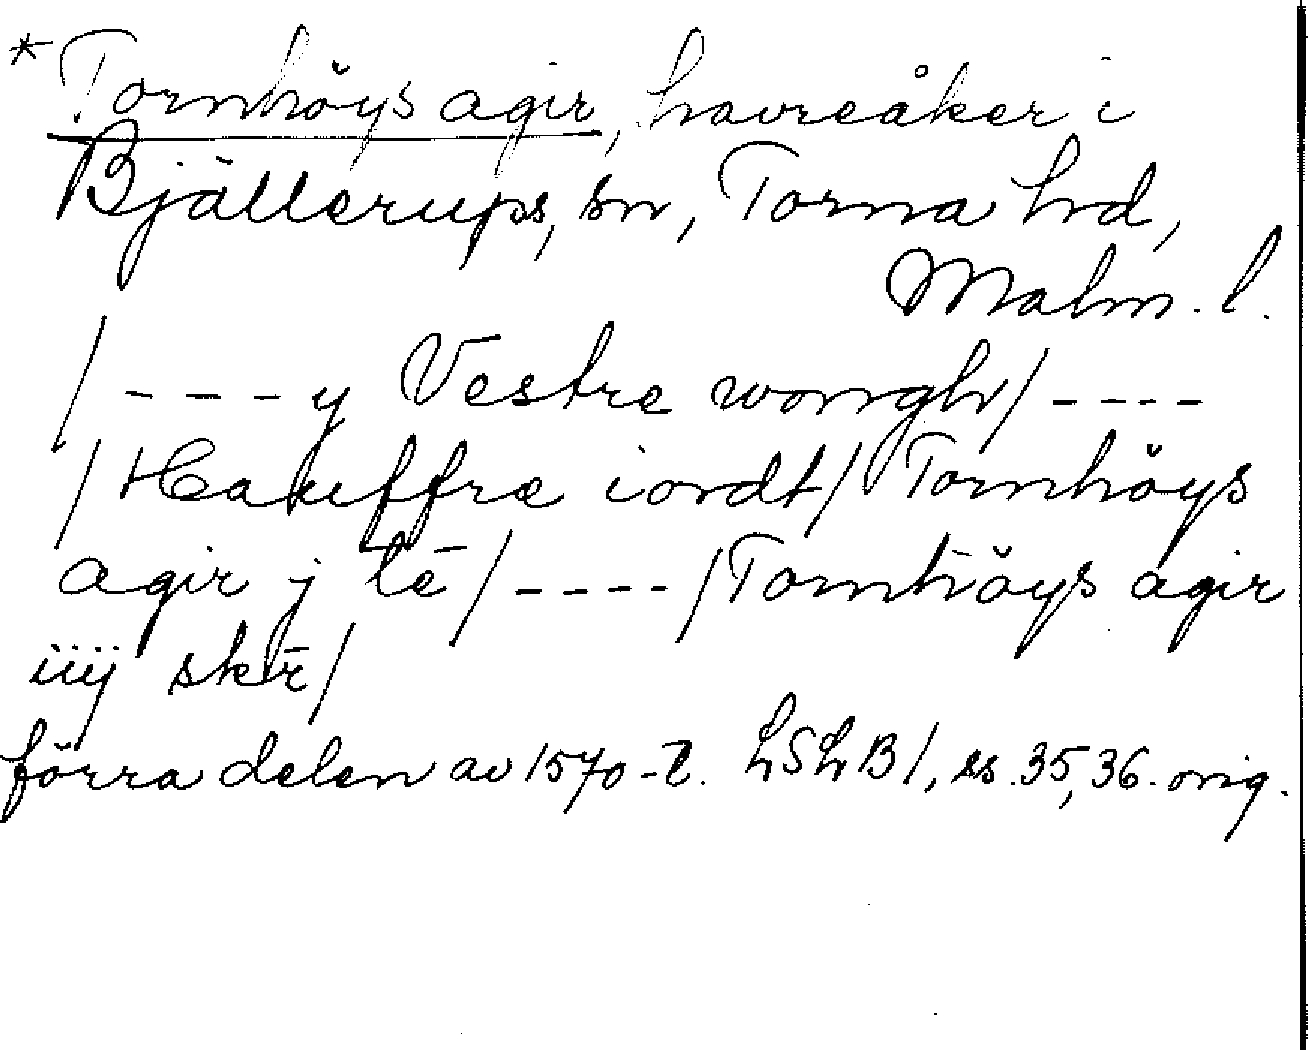 *Tornhöys agir, havreåker i
Bjällerups, sn, Torna hd,
Malm. l.
/ - - - - y Vestre wongh / - - - -
/ Hauffre iordt / Tornhöys
agir j tē / - - - - / Tornhöys agir
iiij skr̄ /
förra delen av 1570-t. LSLB 1, ss. 35, 36. orig.